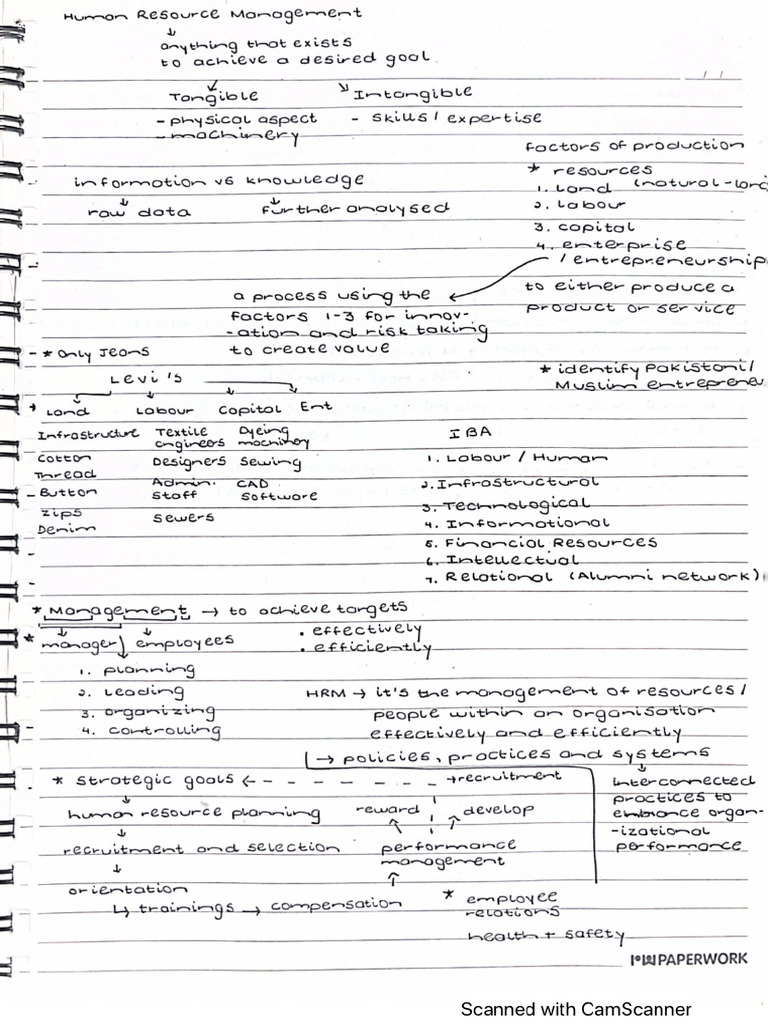 Human Resource Management
↓
anything that exists
to achieve a desired goal.
Tangible
- physical aspect
- machinery
Intangible
- skills / expertise
information vs knowledge
raw data
further analysed
factors of production
* resources
1. Land (natural-
2. Labour
3. capital
4. enterprise
/ entrepreneurship
to either produce a
product or service
a process using the
factors 1-3 for innov-
-ation and risk taking
to create value
* identify Pakistani /
Muslim
- * Only Jeans
Levi's
Land
Infrastructure
Cotton
Thread
- Button
Zips
Denim
Labour
Textile
engineers
Designers
Admin.
Staff
Sewers
Capital
Dyeing
machinery
Sewing
CAD
Software
Ent
IBA
1. Labour / Human
2. Infrastructural
3. Technological
4. Informational
5. Financial Resources
6. Intellectual
7. Relational (Alumni network)
* Management → to achieve targets
. effectively
. efficiently
* manager employees
1. planning
2. Leading
3. organizing
4. controlling
HRM → it's the management of resources /
people within an organisation
effectively and efficiently
→ policies, practices and systems
↓
interconnected
practices to
organ-
-izational
performance
* strategic goals ← - - - - - → recruitment
↓
human resource planning
↓
recruitment and selection
↓
orientation
↳ trainings → compensation
reward
develop
performance
management
* employee
relations
health + safety
PAPERWORK
Scanned with CamScanner